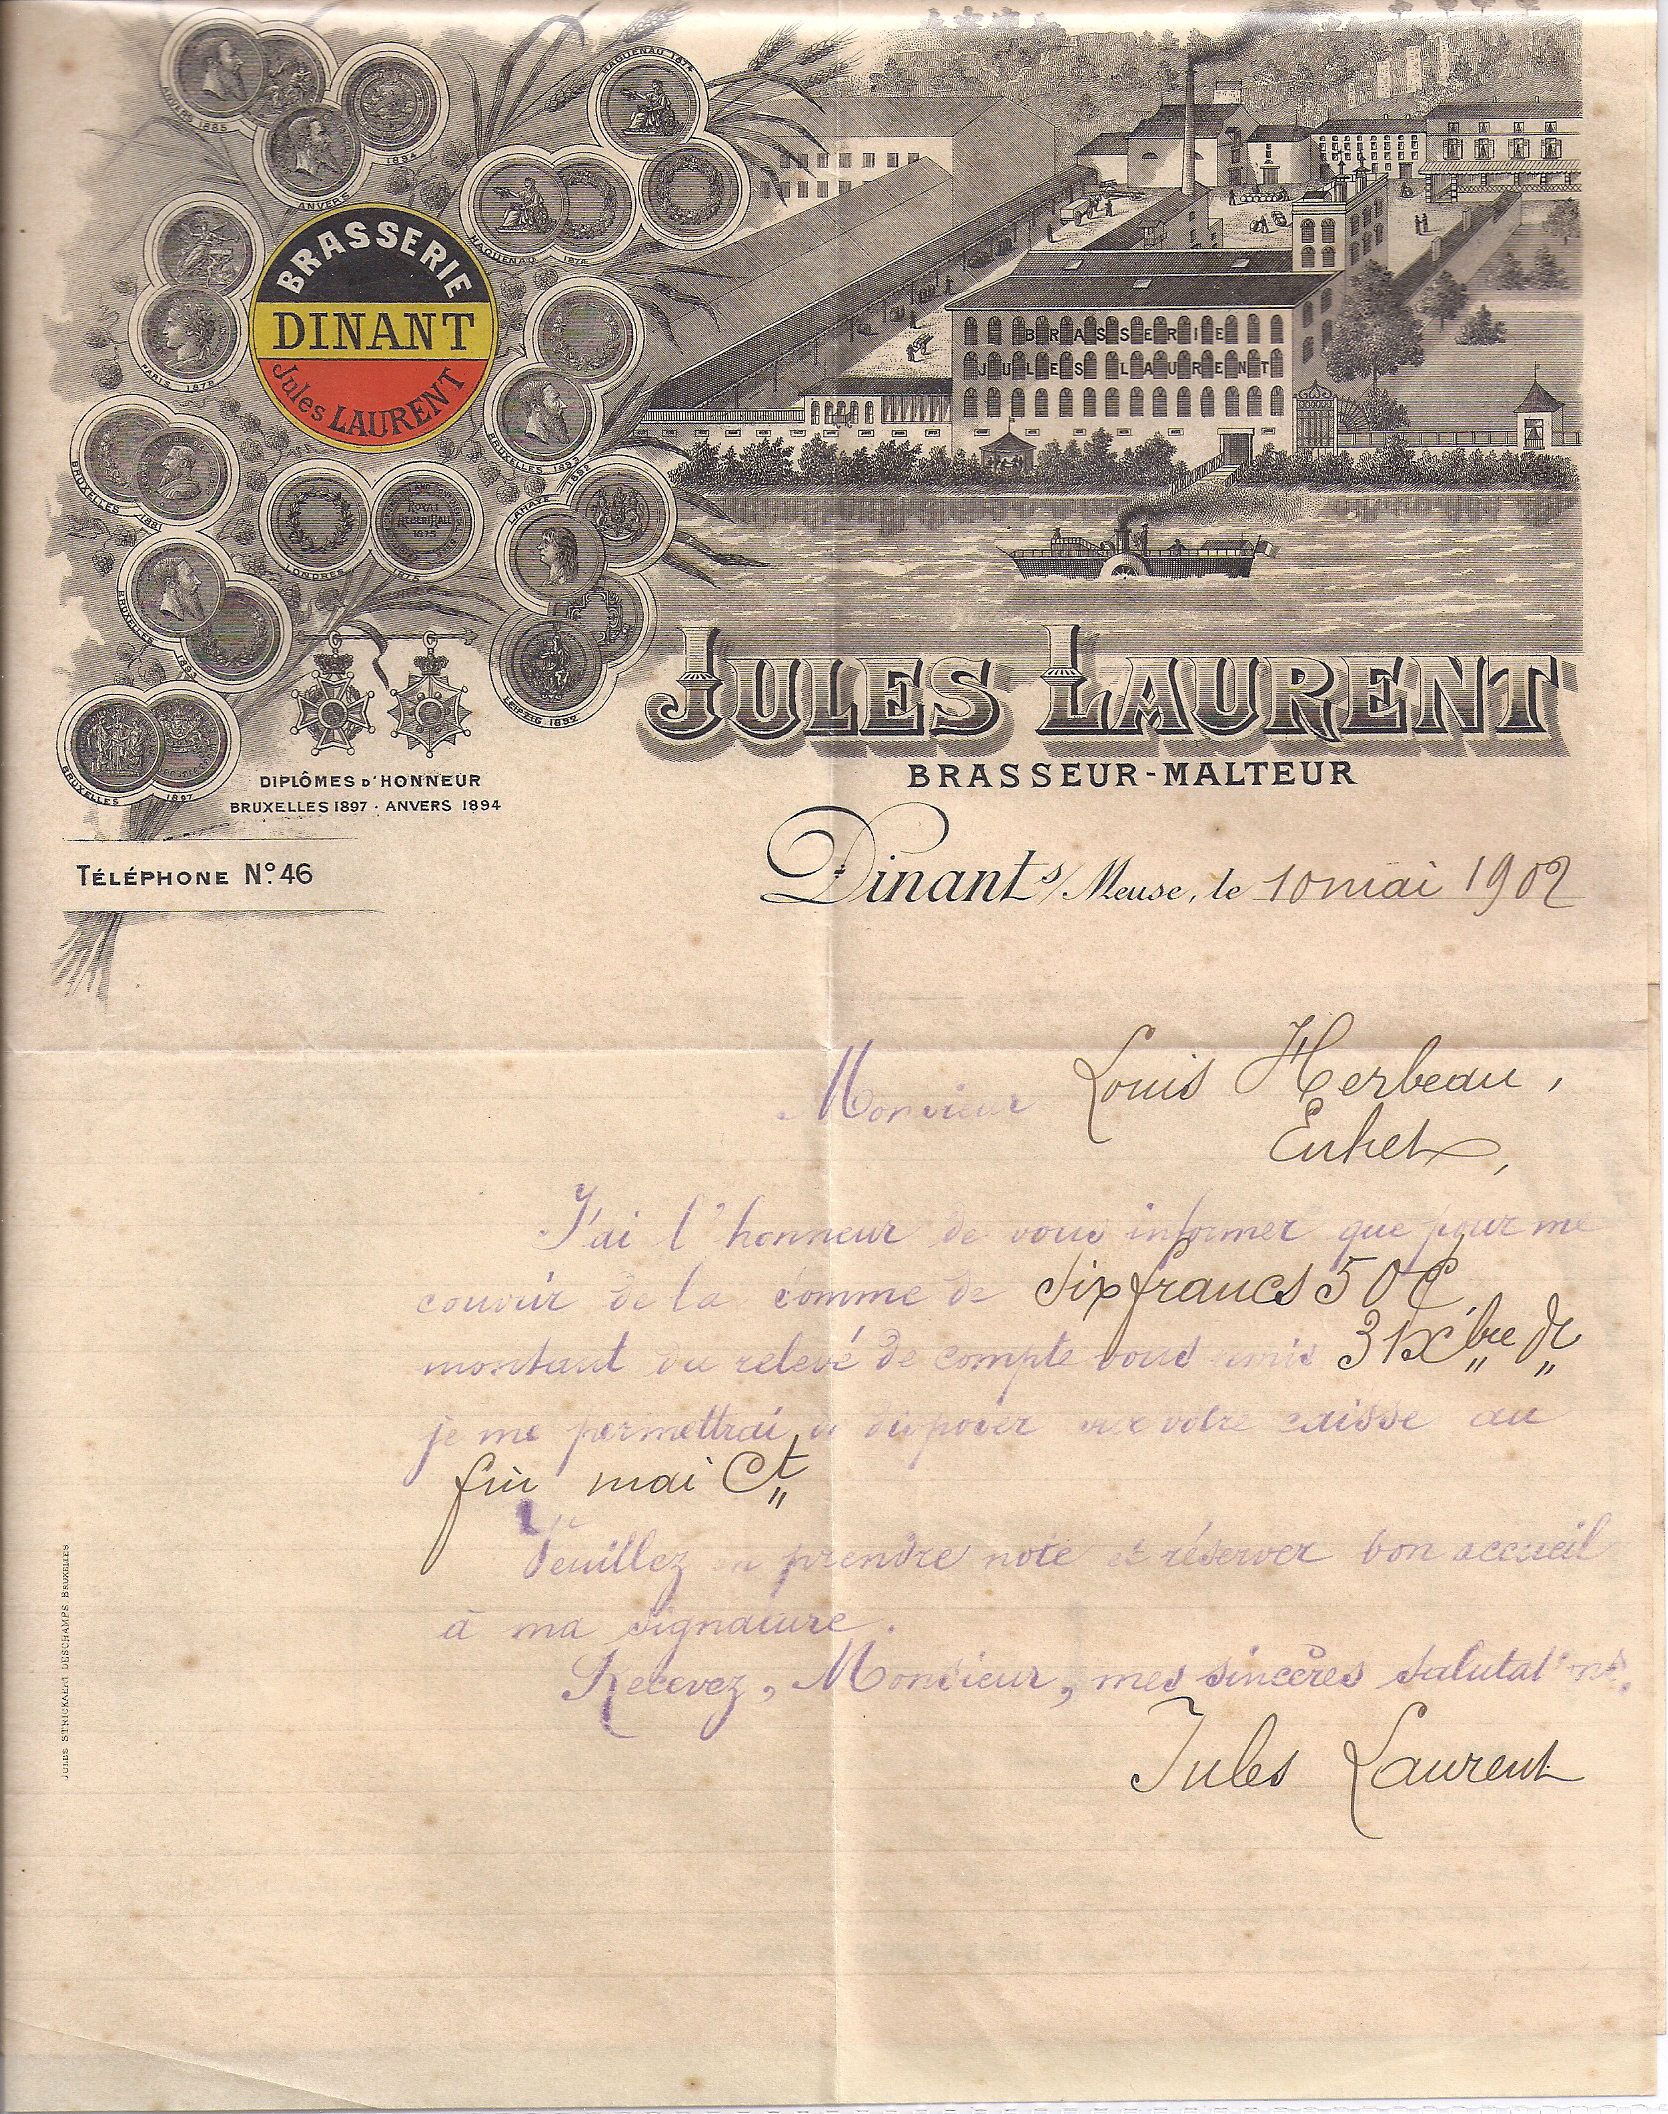 ANVERS 1885
1894
ANVERS
HAGUENAU 1874
HAGUENAU 1874
BRASSERIE
DINANT
Jules LAURENT
PARIS 1878
BRUXELLES 1881
LONDRES 1875
ROYAL
ALBERT HALL
1875
BRUXELLES
LA HAYE
LEIPZIG 1892
BRUXELLES
BRUXELLES 1897
BRASSERIE
JULES LAURENT
DIPLÔMES D'HONNEUR
BRUXELLES 1897 · ANVERS 1894
TÉLÉPHONE No. 46
JULES LAURENT
BRASSEUR-MALTEUR
Dinant s/Meuse, le 10 mai 1902
Monsieur Louis Herbeau,
Enhet,
J'ai l'honneur de vous informer que pour me
couvrir de la somme de six francs 50 C
montant du relevé de compte vous remis 31 Xbre dr
je me permettrai de disposer sur votre caisse au
fin mai Ct
Veuillez en prendre note et réserver bon accueil
à ma signature.
Recevez, Monsieur, mes sincères salutations.
Jules Laurent
JULES STRICKAERT DESCHAMPS BRUXELLES